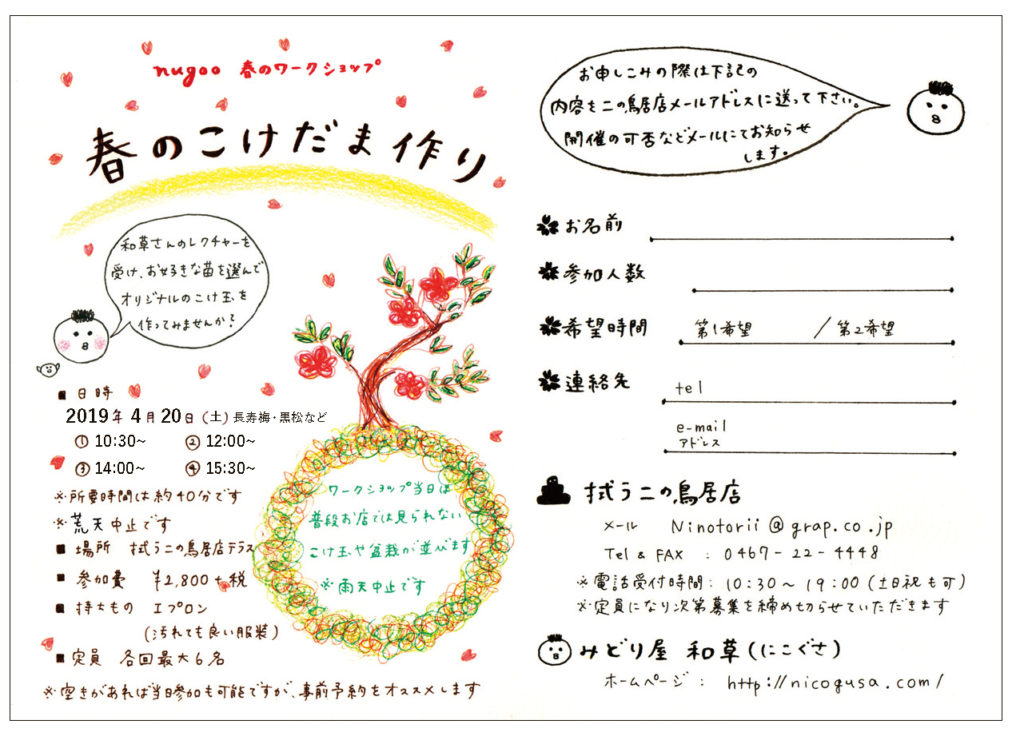 nugoo 春のワークショップ
春のこけだま作り
和草さんのレクチャーを
受け、お好きな苗を選んで
オリジナルのこけ玉を
作ってみませんか？
■ 日時
2019年 4月 20日（土）長寿梅・黒松など
① 10:30~ ② 12:00~
③ 14:00~ ④ 15:30~
※所要時間は約40分です
※荒天中止です
■ 場所 拭う二の鳥居店テラス
■ 参加費 ¥2,800+税
■ 持ちもの エプロン
(汚れても良い服装)
■ 定員 各回最大6名
※空きがあれば当日参加も可能ですが、事前予約をオススメします
ワークショップ当日は
普段お店では見られない
こけ玉や盆栽が並びます
※雨天中止です
お申しこみの際は下記の
内容を二の鳥居店メールアドレスに送って下さい。
開催の可否などメールにてお知らせ
します。
お名前
参加人数
希望時間 第1希望 / 第2希望
連絡先 tel
e-mail
アドレス
拭う二の鳥居店
メール Ninotorii@grap.co.jp
Tel & FAX : 0467-22-4448
※電話受付時間: 10:30〜19:00 (土日祝も可)
※定員になり次第募集を締め切らせていただきます
みどり屋 和草(にこぐさ)
ホームページ : http://nicogusa.com/